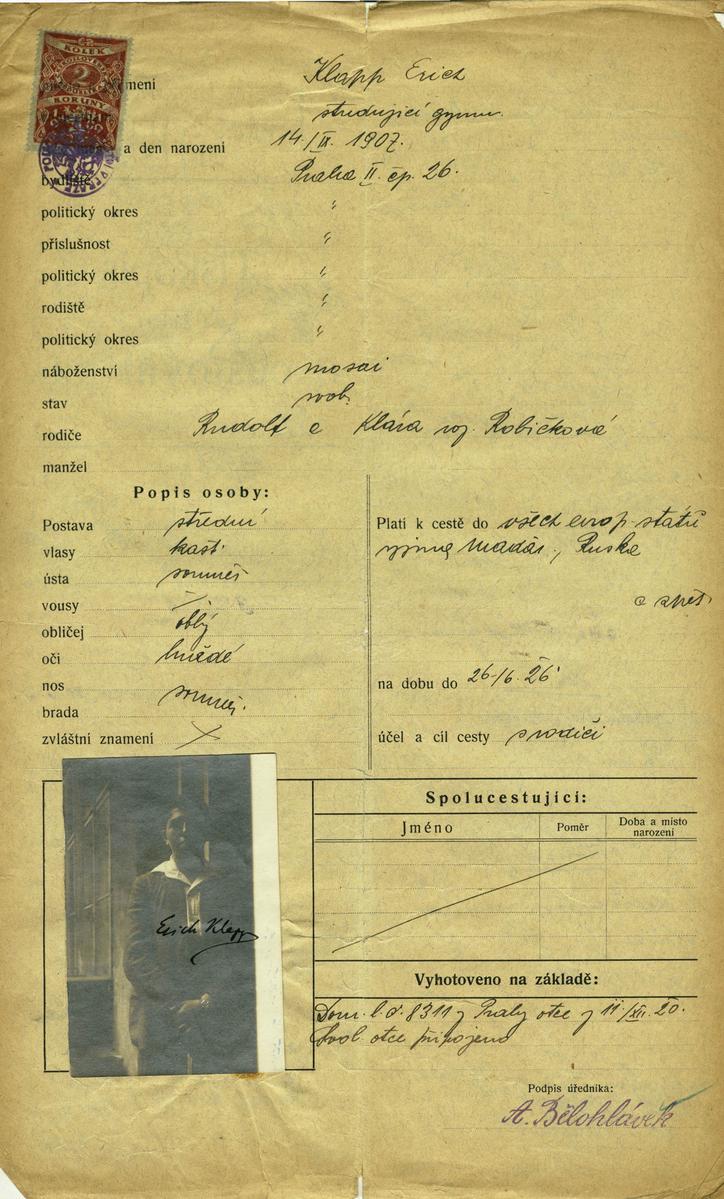 KOLEK
2
KORUNY
mení Klapp Erich
studující gymn.
a den narození 14./III. 1907.
bydliště Praha II. čp. 26.
politický okres "
příslušnost "
politický okres "
rodiště "
politický okres "
náboženství mosai
stav svob.
rodiče Rudolf a Klára roz. Robičková
manžel
Popis osoby:
Postava střední
vlasy kašt.
ústa souměr.
vousy
obličej oblý
oči hnědé
nos souměr.
brada
zvláštní znamení ×
Platí k cestě do všech evrop. států
vyjma Maďar., Ruska
a zpět.
na dobu do 26./6. 26
účel a cíl cesty s rodiči
Erich Klapp
Spolucestující:
Jméno Poměr Doba a místo narození
Vyhotoveno na základě:
Dom. l. č. 8311 z Prahy otce z 11/XII. 20.
Svol. otce připojeno
Podpis úředníka:
A. Bělohlávek